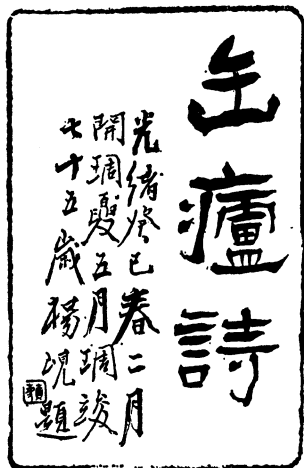 缶廬詩
光緒癸巳春二月
開琱夏五月琱竣
七十五歲楊峴題